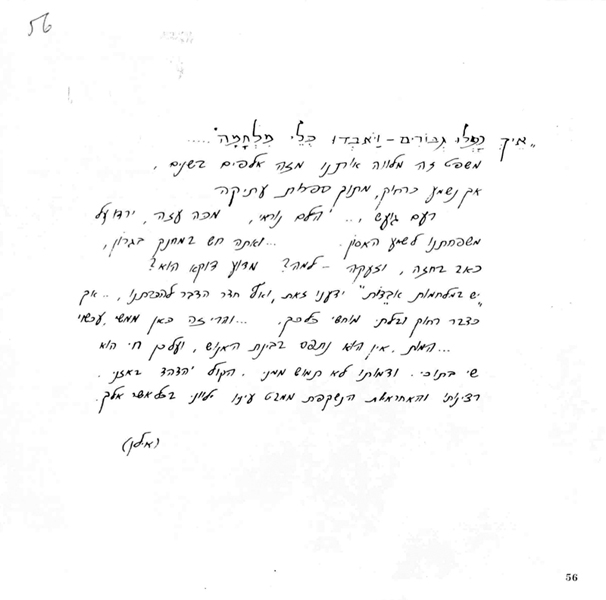 56
"איך נפלו גבורים - ויאבדו כלי מלחמה".....
משפט זה מלווה איתנו מזה אלפים בשנים,
אך נשמע כרחוק, מתוק ספרות עתיקה
רעם גועש ... הלם נורא, מכה עזה, ירדו על
משפחתנו לשמע האסון. ...ואתה חש במחנק בגרון,
כאב בחזה, וזעקה - למה? מדוע דוקא הוא?
"יש במלחמות אבדות" ידענו זאת, ואף חדר הדבר להכרתנו, .. אך
כדבר רחוק ובלתי מוחשי כל כך. ... והרי זה כאן ממשי, עכשיו
...המות, אין הוא נתפס בבינת האנוש, ועל כן חי הוא
בתוכי. ודמותו לא תמוש ממני. הקול יהדהד באזני.
רצינות והאחראיות הנשקפת ממבט עיניו ילווני בכל אשר אלך.
(אילן)
56